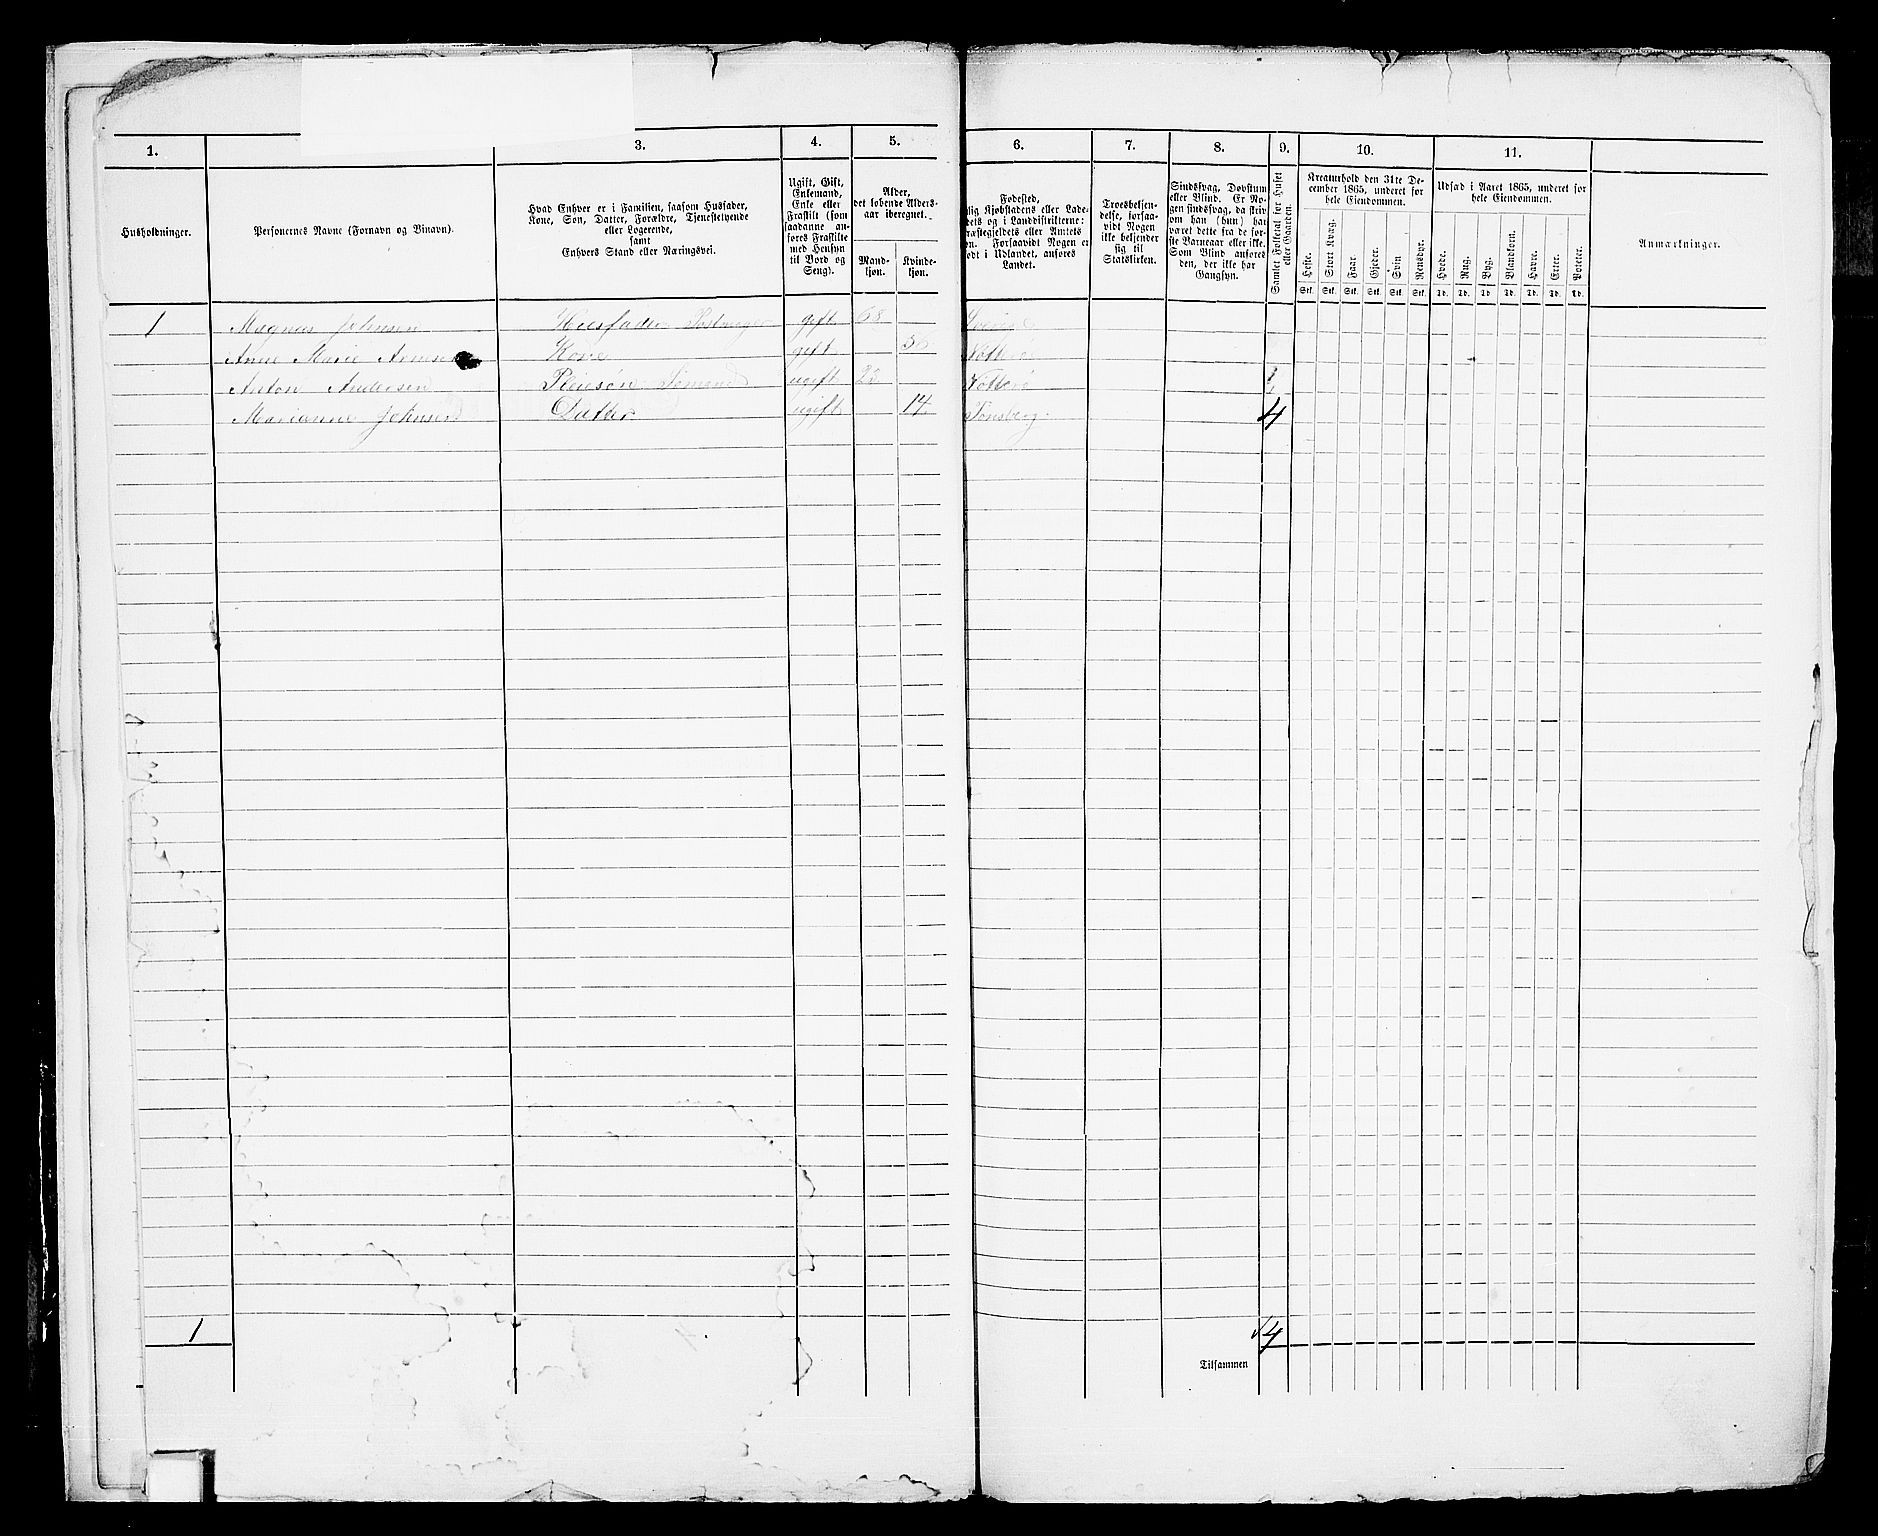 1. 3. 4. 5. 6. 7. 8. 9. 10. 11.
Husholdninger.
Personernes Navne (Fornavn og Binavn).
Hvad Enhver er i Familien, saasom Husfader,
Kone, Søn, Datter, Forældre, Tjenestetyende
eller Logerende,
samt
Enhvers Stand eller Næringsvei.
Ugift, Gift,
Enkemand,
Enke eller
Fraskilt (som
saadanne an-
føres Fraskilte
med Hensyn
til Bord og
Seng).
Alder,
det løbende Alders-
aar iberegnet.
Mand-
kjøn.
Kvinde-
kjøn.
Fødested,
lig Kjøbstadens eller Lade-
dets og i Landdistrikterne:
ræstegjeldets eller Amtets
vn. Forsaavidt Nogen er
født i Udlandet, anføres
Landet.
Troesbekjen-
delse, forsaa-
vidt Nogen
ikke bekjender
sig til
Statskirken.
Sindssvag, Døvstum
eller Blind. Er No-
gen sindssvag, da skriv
om han (hun) har
været dette fra de før-
ste Barneaar eller ikke.
Som Blind anføres
den, der ikke har
Gangsyn.
Samlet Folketal for Huset
eller Gaarden.
Kreaturhold den 31te De-
cember 1865, underet for
hele Eiendommen.
Heste. Stort Kvæg. Faar. Gjeder. Svin Rensdyr.
Stk. Stk. Stk. Stk. Stk. Stk.
Udsæd i Aaret 1865, underet for
hele Eiendommen.
Hvede. Rug. Byg. Blandkorn. Havre. Erter. Poteter.
Td. Td. Td. Td. Td. Td. Td.
Anmærkninger.
1 Magnus Johnsen Huusfader gift 68
Anne Marie Kone gift Nøtterø
Anton Andersen Pleiesøn Sømand ugift 22 Nøtterø
Marianne Johnsen Datter ugift 14 Tønsberg 4
1 4
Tilsammen